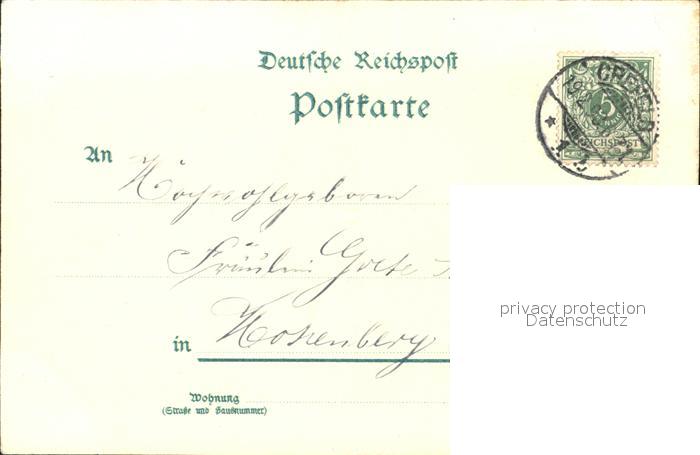 Deutsche Reichspost
Postkarte
CREFELD
5
PFENNIG
REICHSPOST
An
Hochwohlgeboren
Fräulein Grete
in Hohenberg
privacy protection
Datenschutz
Wohnung
(Straße und Hausnummer)